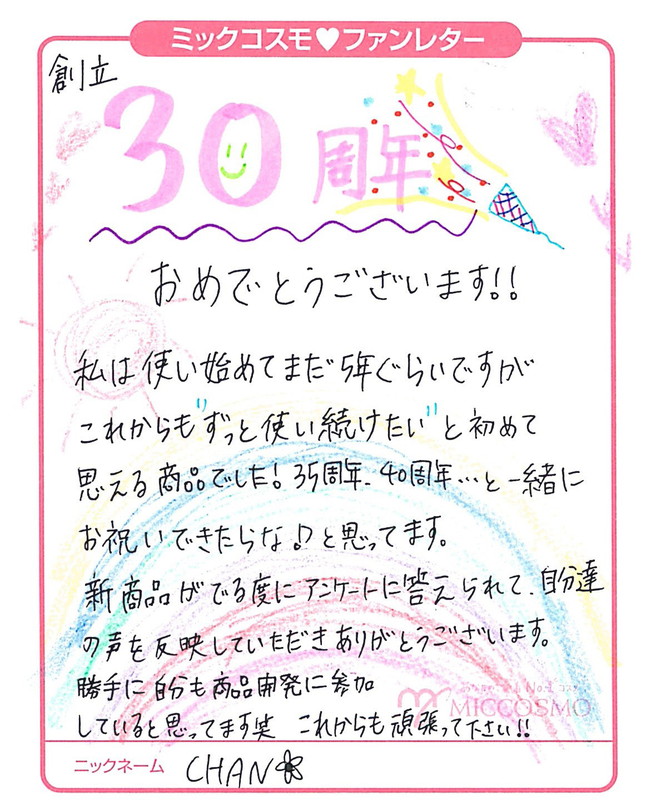 ミックコスモ♥ファンレター
創立
30周年
おめでとうございます!!
私は使い始めてまだ5年ぐらいですが
これからも"ずっと使い続けたい"と初めて
思える商品でした!35周年、40周年…と一緒に
お祝いできたらな♪と思ってます。
新商品がでる度にアンケートに答えられて、自分達
の声を反映していただきありがとうございます。
勝手に自分も商品開発に参加
していると思ってます笑 これからも頑張って下さい!!
MICCOSMO
ニックネーム CHAN